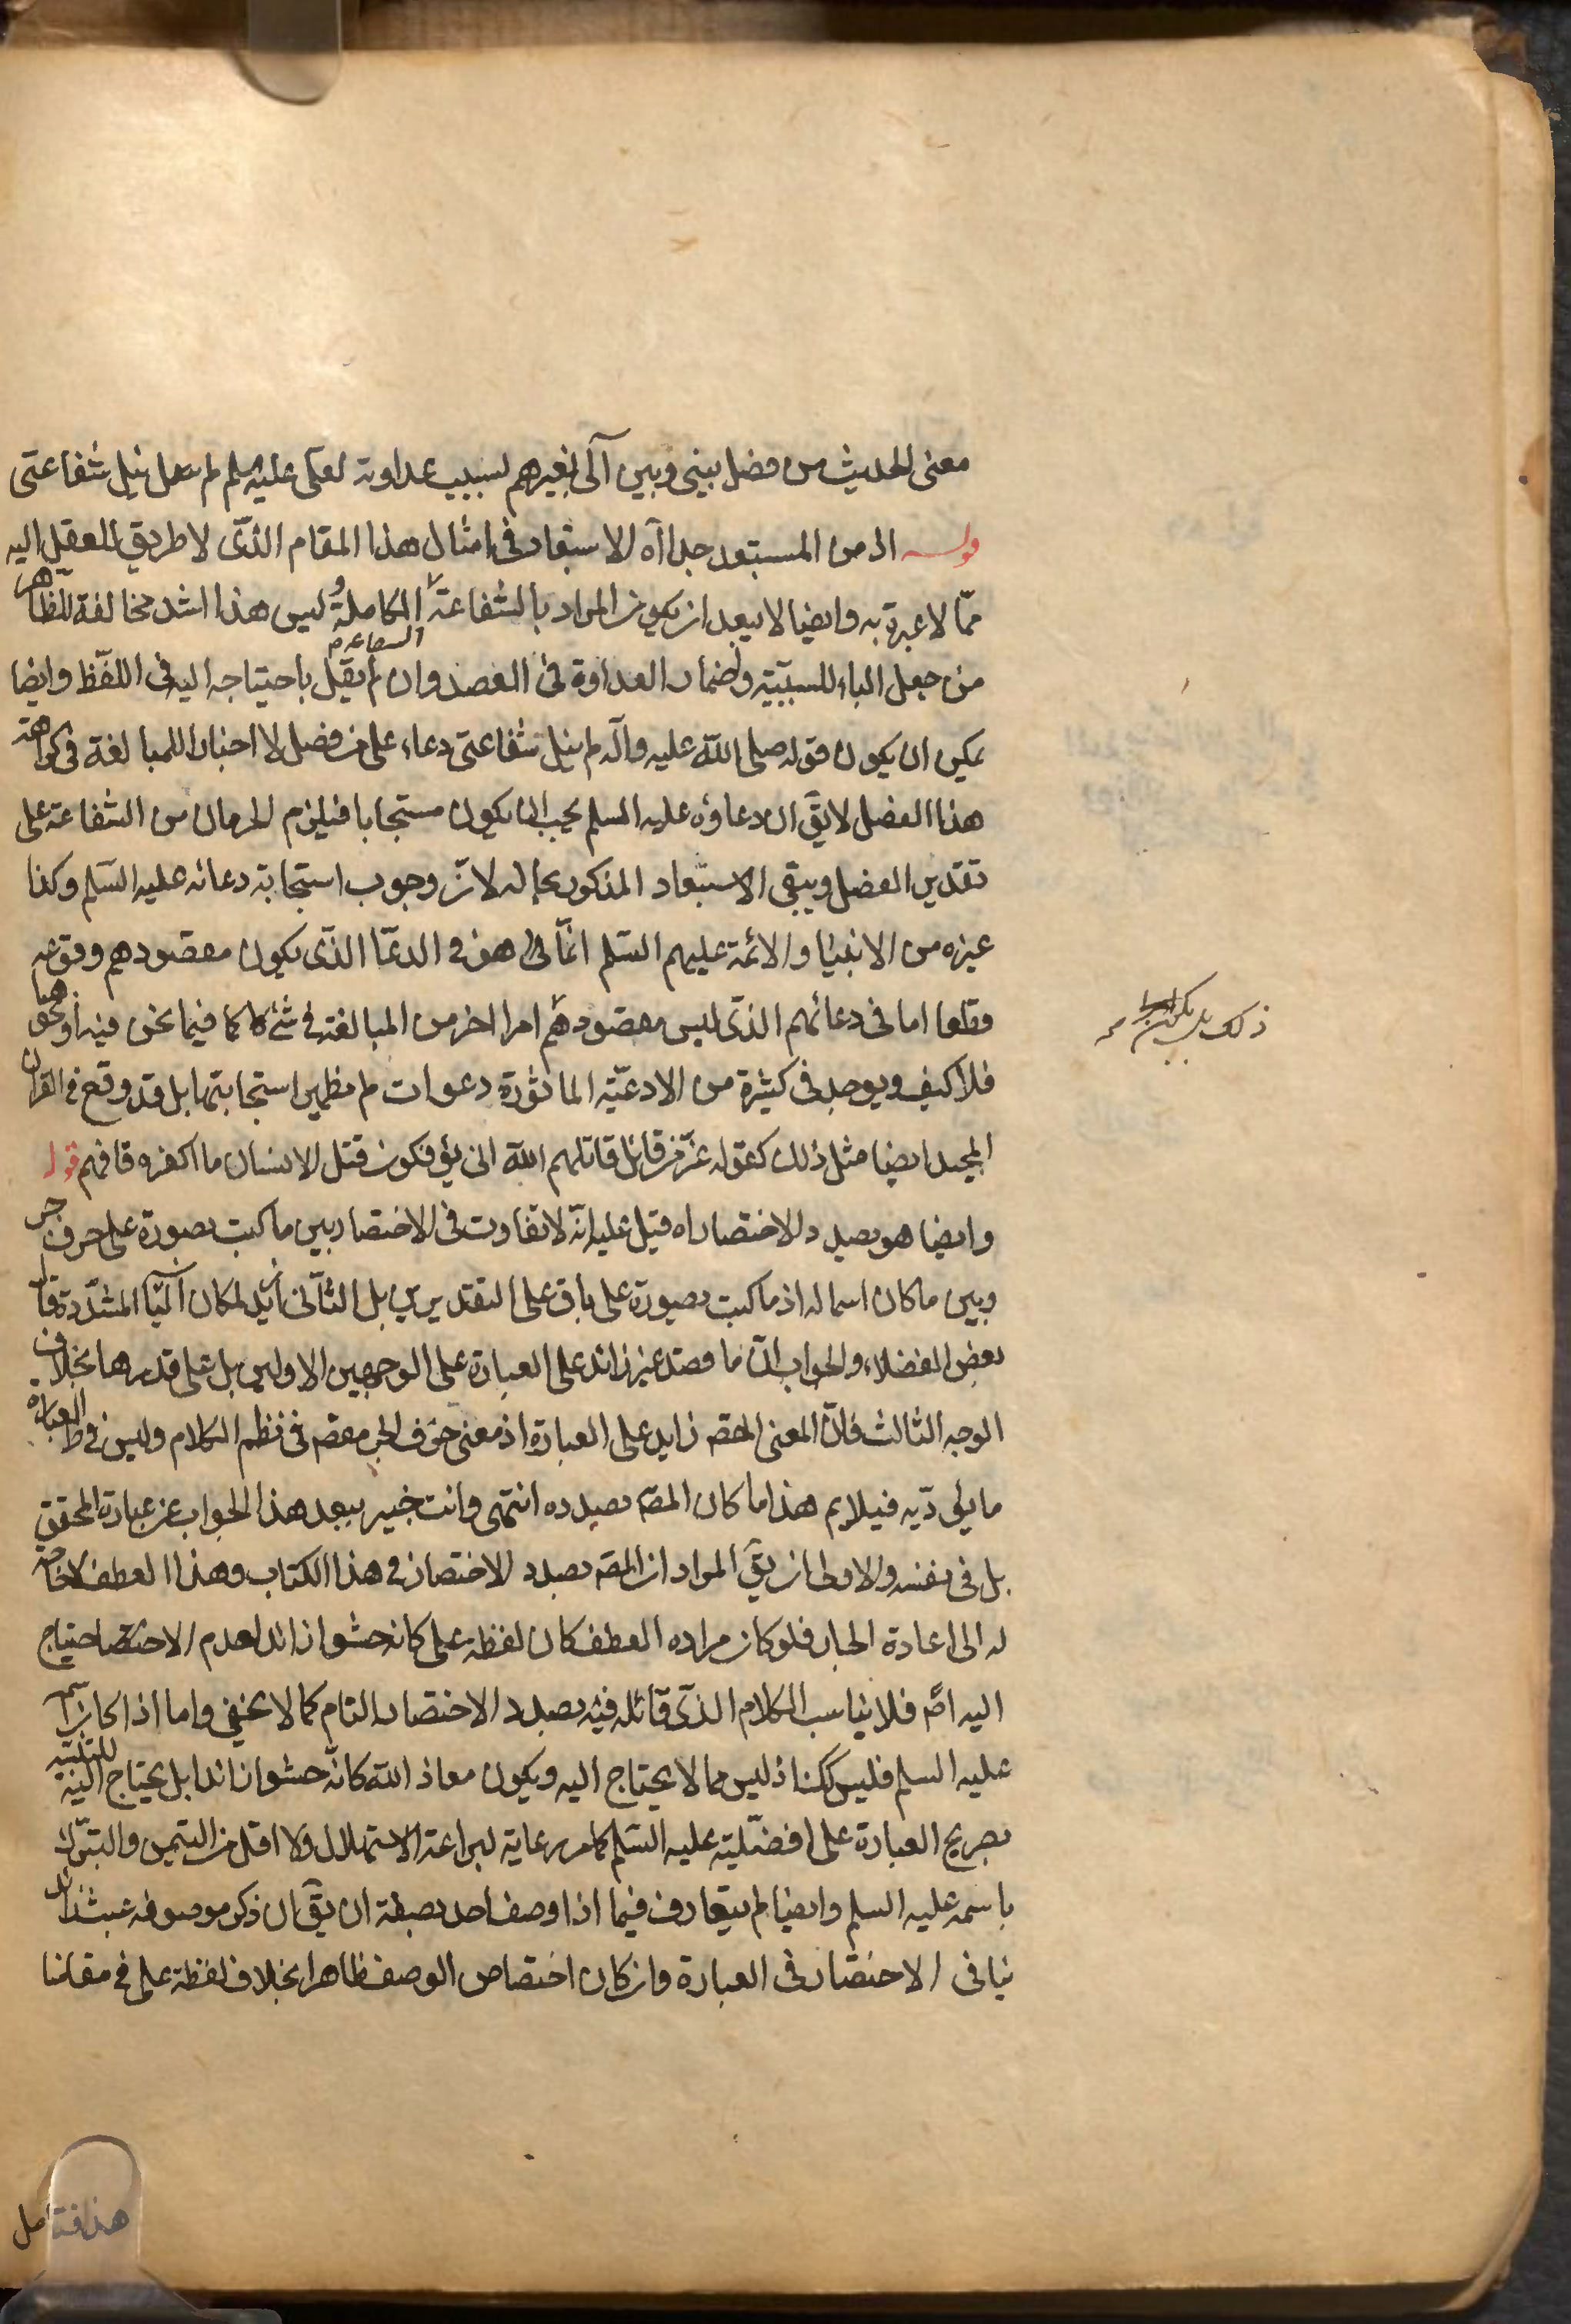 معنى الحديث من فصل بيني وبين آلى بغيرهم بسبب عداوته لعلى عليه السلم لم ينل شفاعتى
قوله ان من المستبعد جدا اه الاستبعاد فى امثال هذا المقام الذى لا طريق للعقل اليه
ممّا لا عبرة به وايضا لا يبعد ان يكون المراد بالشفاعة الشفاعة الكاملة وليس هذا اشد مخالفة للظاهر
من جعل الباء للسببيّة واضمار العداوة فى الفصل وان لم يقل باحتياجه اليه فى اللفظ وايضا
يمكن ان يكون قوله صلى الله عليه وآله لم ينل شفاعتى دعاء على من فصل لا اخبارا للمبالغة فى كراهة
هذا الفصل لا يقّ ان دعاؤه عليه السلم يجب ان يكون مستجابا فيلزم الحرمان من الشفاعة على
تقدير الفصل ويبقى الاستبعاد المذكور بحاله لانّ وجوب استجابة دعائه عليه السّلم وكذا
غيره من الانبيا والائمة عليهم السّلم انّما هو فى الدعا الذّى يكون مقصودهم وقوعه
قطعا اما فى دعائهم الذى ليس مقصودهم امرا اخر من المبالغة فى شئ كما فيما نحن فيه او نحوها
فلا كيف ويوجد فى كثيرة من الادعيّة الماثورة دعوات لم يظهر استجابتها بل قد وقع فى القران
المجيد ايضا مثل ذلك كقوله عزّ من قائل قاتلهم الله انى يؤفكون قتل الانسان ما اكفره فافهم قوله
وايضا هو بصدد الاختصار اه قيل عليه انّه لا تفاوت فى الاختصار بين ما كتب بصورة على حرف جر
وبين ما كان اسما له اذ ما كتب بصورة على باق على التقديرين بل الثّانى ازيد لمكان اليا المشدّدة قال
بعض الفضلاء والجواب انّ ما قصد غير زائد على العبارة على الوجهين الاولين بل على قدرها بخلاف
الوجه الثالث فانّ المعنى المقصّ زايد على العبارة اذ معنى حرف الجر مقصّ فى نظم الكلام وليس فى ظ العبارة
ما يؤدّيه فيلايم هذا ما كان المصّ بصدده انتهى وانت خبير ببعد هذا الجواب عن عبارة المحقق
بل فى نفسه والاولى ان يقّ المراد ان المصّ بصدد الاختصار فى هذا الكتاب وهذا العطف لا حاجة
له الى اعادة الجار فلو كان مراده العطف كان لفظة على كانه حشوا زائدا لعدم الاحتياج
اليه اصّ فلا يناسب الكلام الذى قائله فيه بصدد الاختصار التام كما لا يخفى واما اذا كان اسمه
عليه السلم فليس كك اذ ليس مما لا يحتاج اليه ويكون معاذ الله كانّه حشوا زائدا بل يحتاج اليه
بصريح العبارة على افضليّة عليه السّلم كما مر رعاية لبراعة الاستهلال ولا اقل من التيمن والتبرّك
باسمه عليه السلم وايضا لم يتعارف فيما اذا وصف احد بصفة ان يقّ ان ذكر موصوفه عبث زائد
ينافى الاختصار فى العبارة وان كان اختصاص الوصف ظاهرا بخلاف لفظة على فى مقامنا
هذا فتامل
ذلك بل يكون